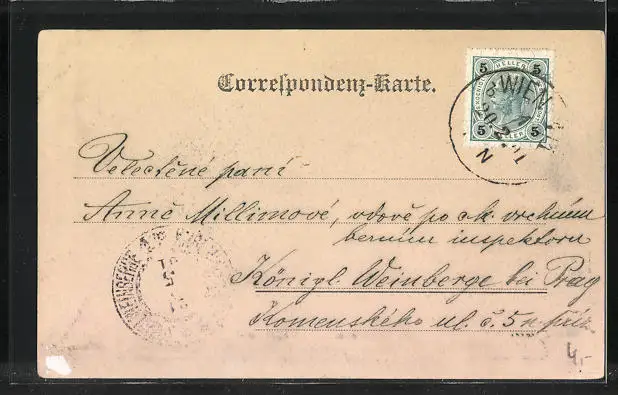 Correspondenz-Karte.
5 HELLER 5
5 HELLER 5
WIEN
Velectěné paní
Anně Millimové, vdově po c.k. vrchním
berním inspektoru
Königl. Weinberge bei Prag
Komenského ul. č. 5n
4,-